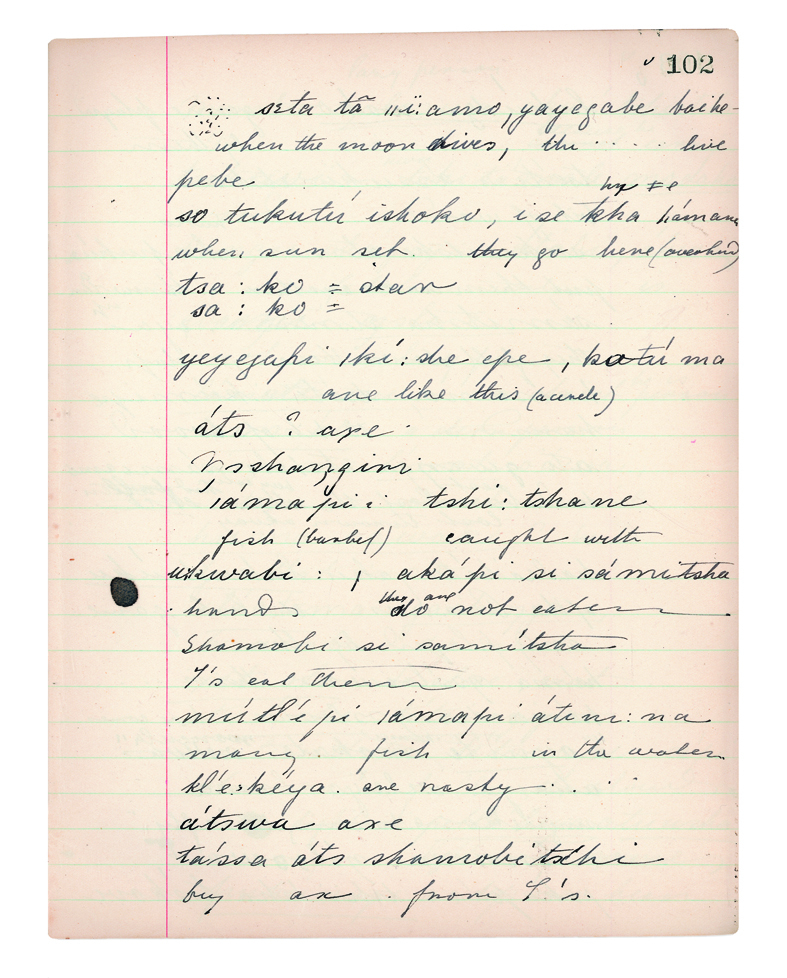 102
seta tã ııï:amo, yayegabe boihe-
when the moon dives, the .... live
pebe
so tukutú ishoko, i se kha
when sun set. they go here (overhead)
tsa : ko = star
sa : ko =
yeyegapi ıkí: she epe, katú ma
are like this (a circle)
áts ? axe
ıámapi : tshi : tshane
fish (barbel) caught with
ukwabi : ; akápi si sámıtsha
hands they are do not eaten
Shamobi si samítsha
T's eat them
mútl'é pi ıámapi átın : na
many. fish in the water
kl'e:kéya. are nasty . . .
átswa axe
tássa áts shamobitshi
buy ax from T.'s.